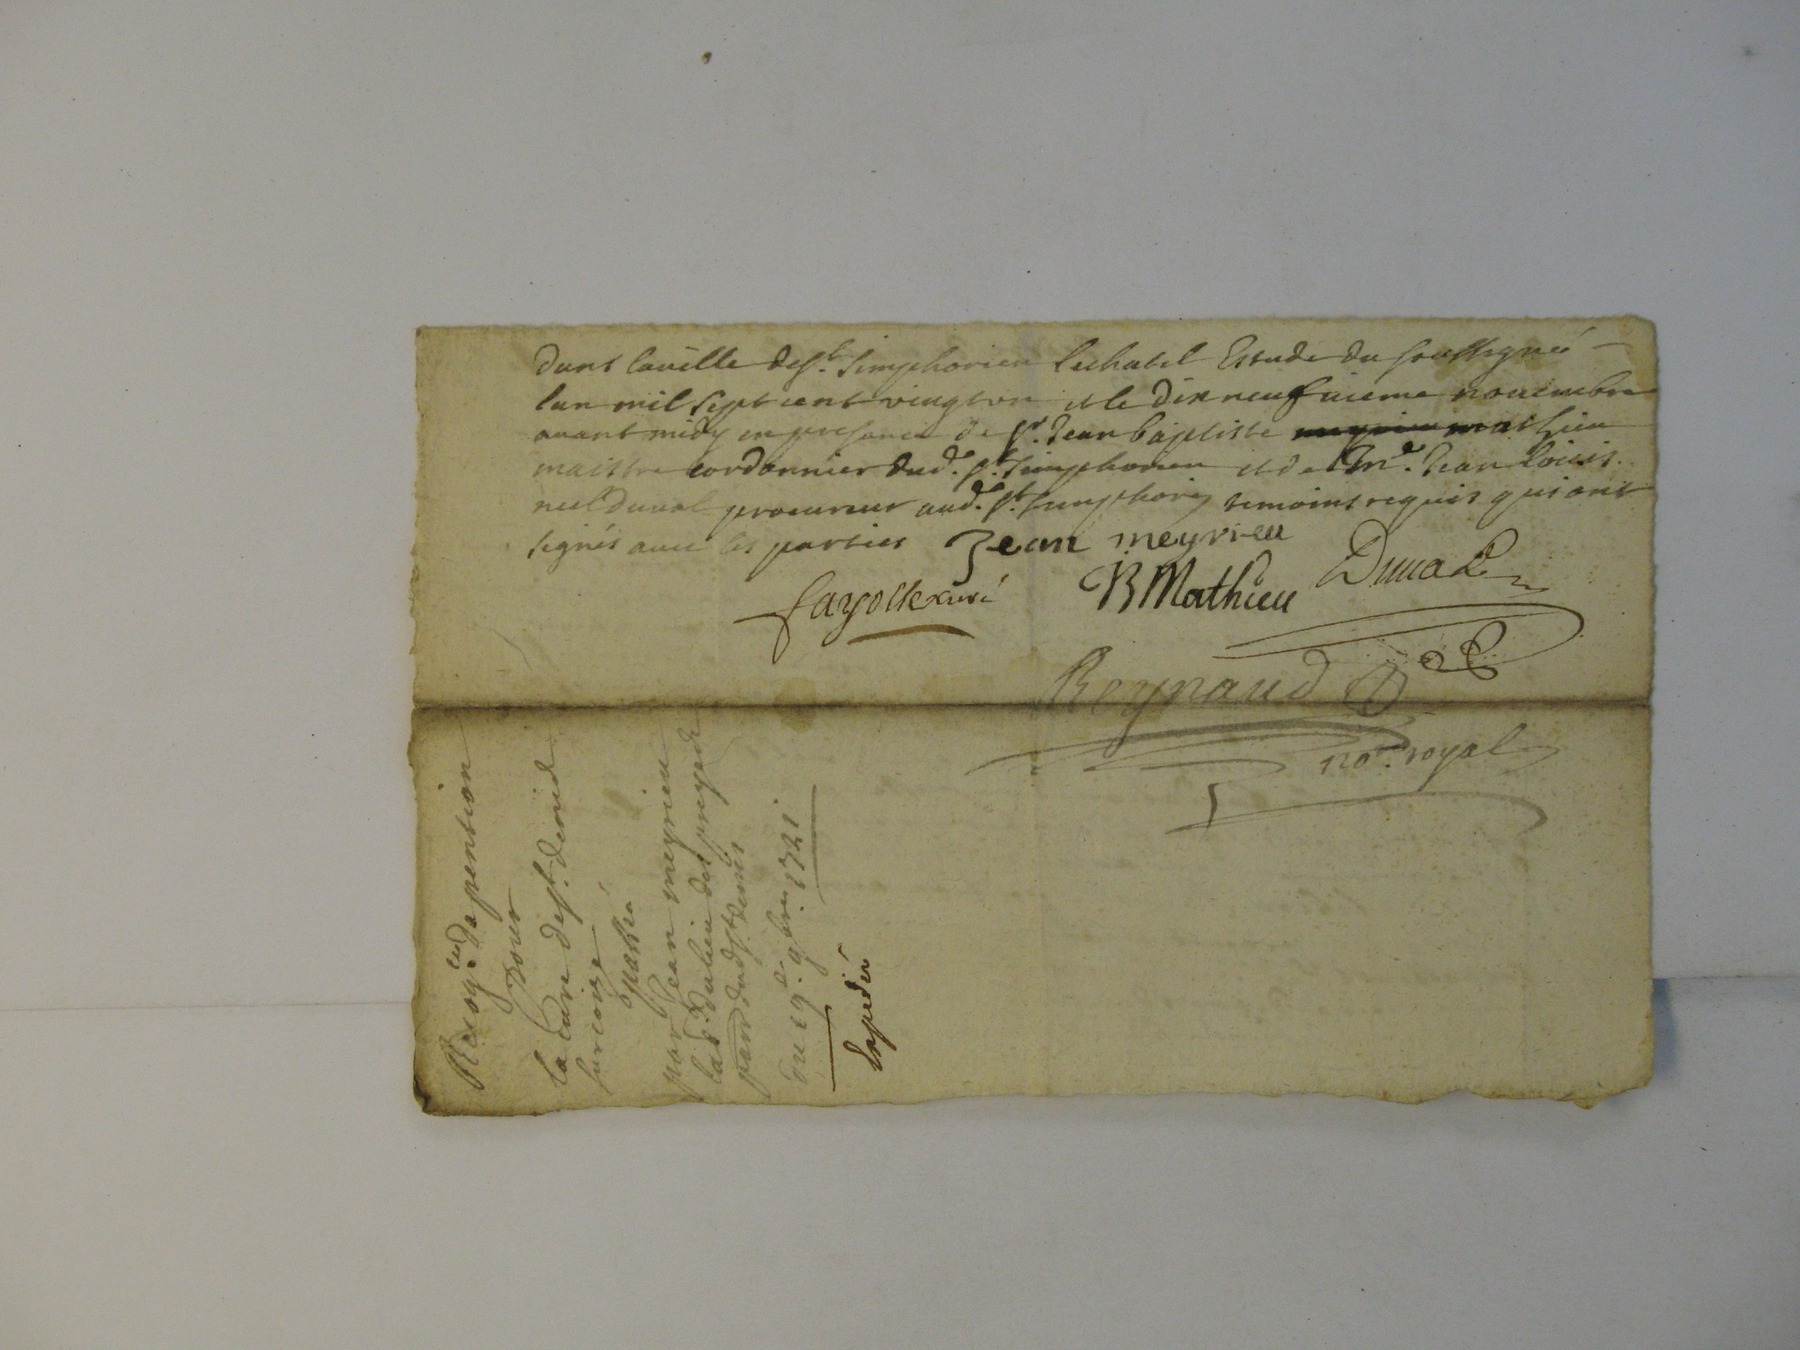 dans la ville de st. simphorien lechatel Estude du soussigné
lan mil sept cent vingt un et le dix neufuieme nouembre
auant midy en presance de sr. Jean baptiste mathieu
maistre cordonnier dud. st. simphorien et de Me. Jean louis
duval procureur aud. st. simphorien temoins requis qui ont
signés auec les parties Jean meyrieu
fayolle curé
B Mathieu
Duual
Reynaud
nore. royal
Recog.on de pention
pour
la cure de st. denis
sur coize
passée
par Jean meyrieu
lab.r du lieu de
par. dud. st. denis
du 19e. 9bre. 1721
Expedié